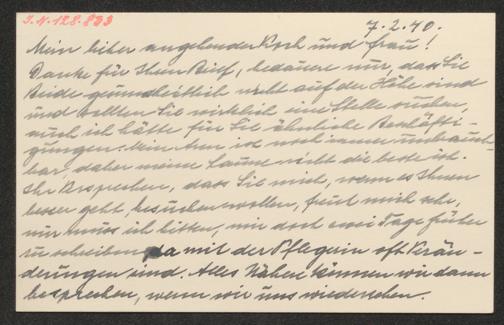 I.N. 128.833
7.2.40.
Mein lieber angehender Koch und Frau!
Danke für Ihren Brief, bedauere nur, dass Sie
Beide gesundheitlich nicht auf der Höhe sind
und sollten Sie wirklich eine Stelle suchen,
auch ich hätte für Sie ähnliche Beschäfti-
gungen. Mein Arm ist noch immer unbrauch-
bar, daher meine Laune nicht die beste ist.
Ihr Versprechen, dass Sie mich, wenn es Ihnen
besser geht, besuchen wollen, freut mich sehr,
nur muss ich bitten, mir doch zwei Tage früher
zu schreiben, da mit der Pflegerin oft Verän-
derungen sind. Alles Nähere können wir dann
besprechen, wenn wir uns wiedersehen.